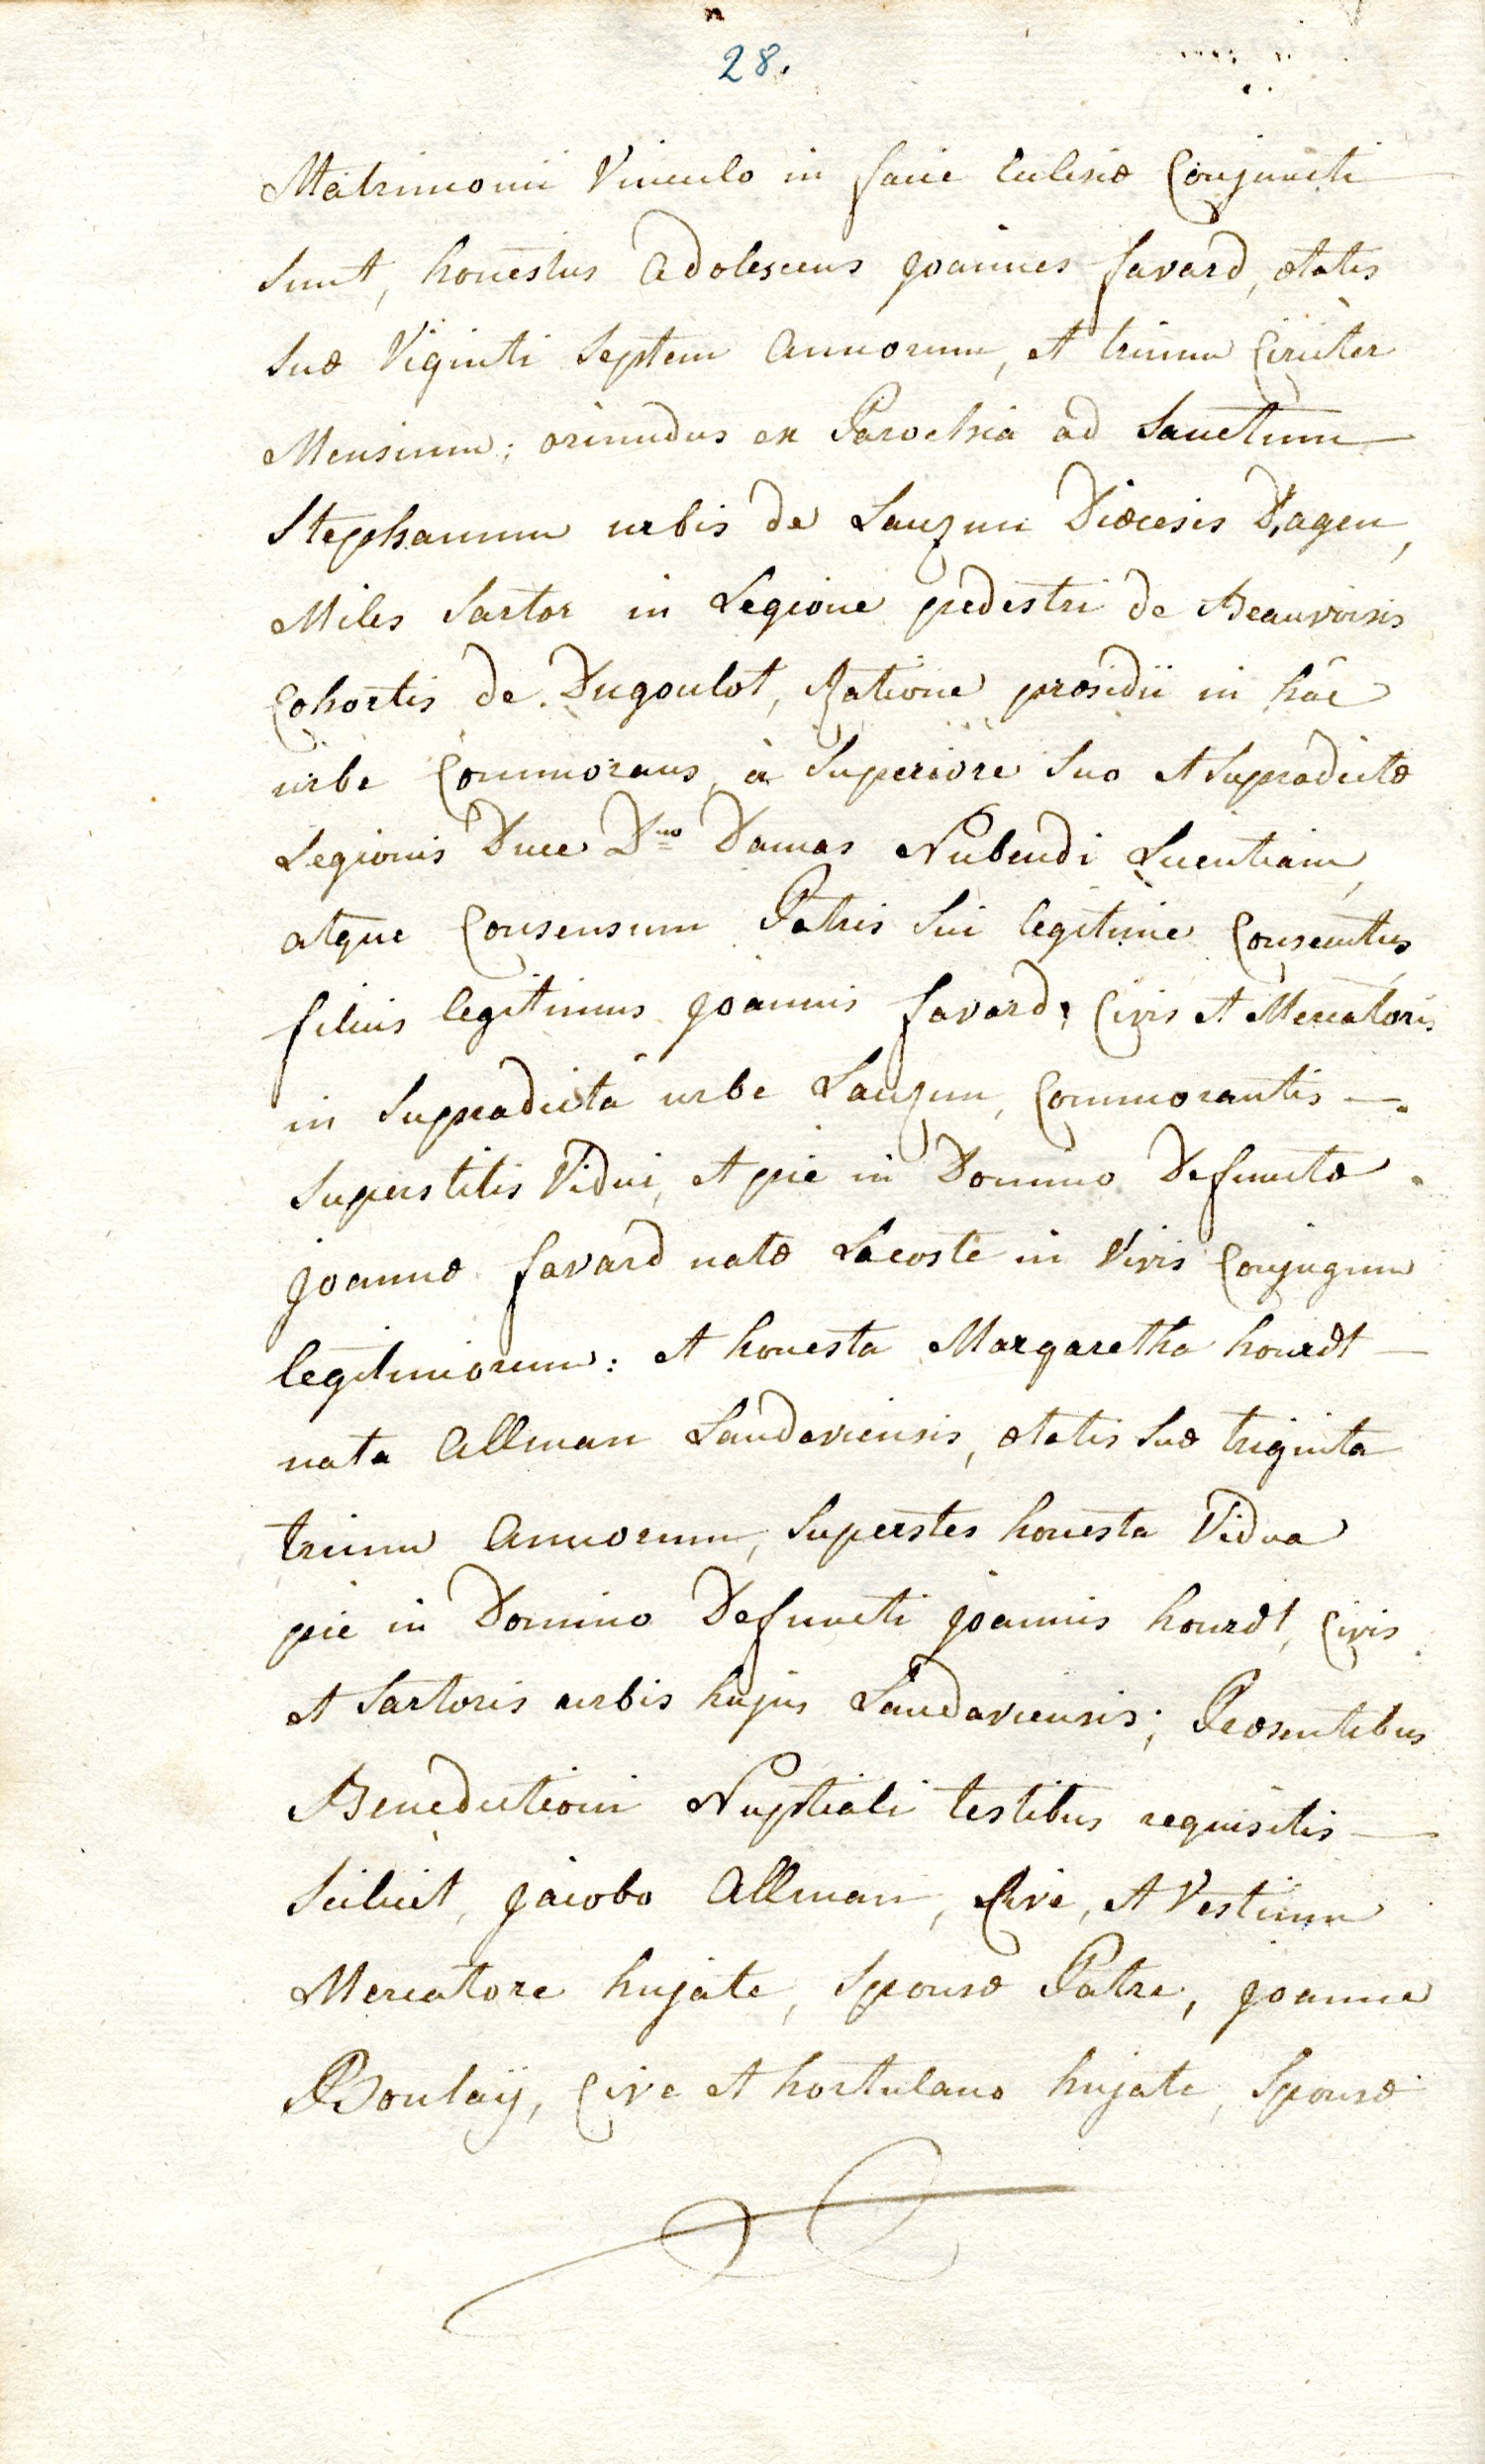 28.
Matrimonii Vinculo in facie Eclesiæ Conjuncti
sunt, honestus adolescens joannes favard, ætatis
suæ Viginti septem annorum, et trium Circiter
Mensium; oriundus ex Parochia ad Sanctum
Stephanum urbis de Lauzun Diœcesis D'agen,
Miles sartor in Legione pedestri de Beauvoisis
Cohortis de Dugoulot, Ratione præsidii in hâc
urbe Commorans, à Superiore suo et supradictæ
Legionis Duce D<sup>no</sup> Damas Nubendi Licentiam,
atque Consensum Patris sui legitime Consecutus
filius legitimus joannis favard, Civis et Mercatoris
in supradictâ urbe Lauzun, Commorantis
superstitis Vidui, et pie in Domino Defunctæ
joannæ favard natæ Lacoste in Vivis Conjugum
legitimorum: et honesta Margaretha hourdt
nata allman Landaviensis, ætatis suæ triginta
trium annorum, superstes honesta Vidua
pie in Domino Defuncti joannis hourdt, Civis
et sartoris urbis hujus Landaviensis; Præsentibus
Benedictioni Nuptiali testibus requisitis
scilicet, jacobo allman, Cive, et Vestium
Mercatore hujate, sponsæ Patre, joanne
Boulaÿ, Cive et hortulano hujate, sponsæ